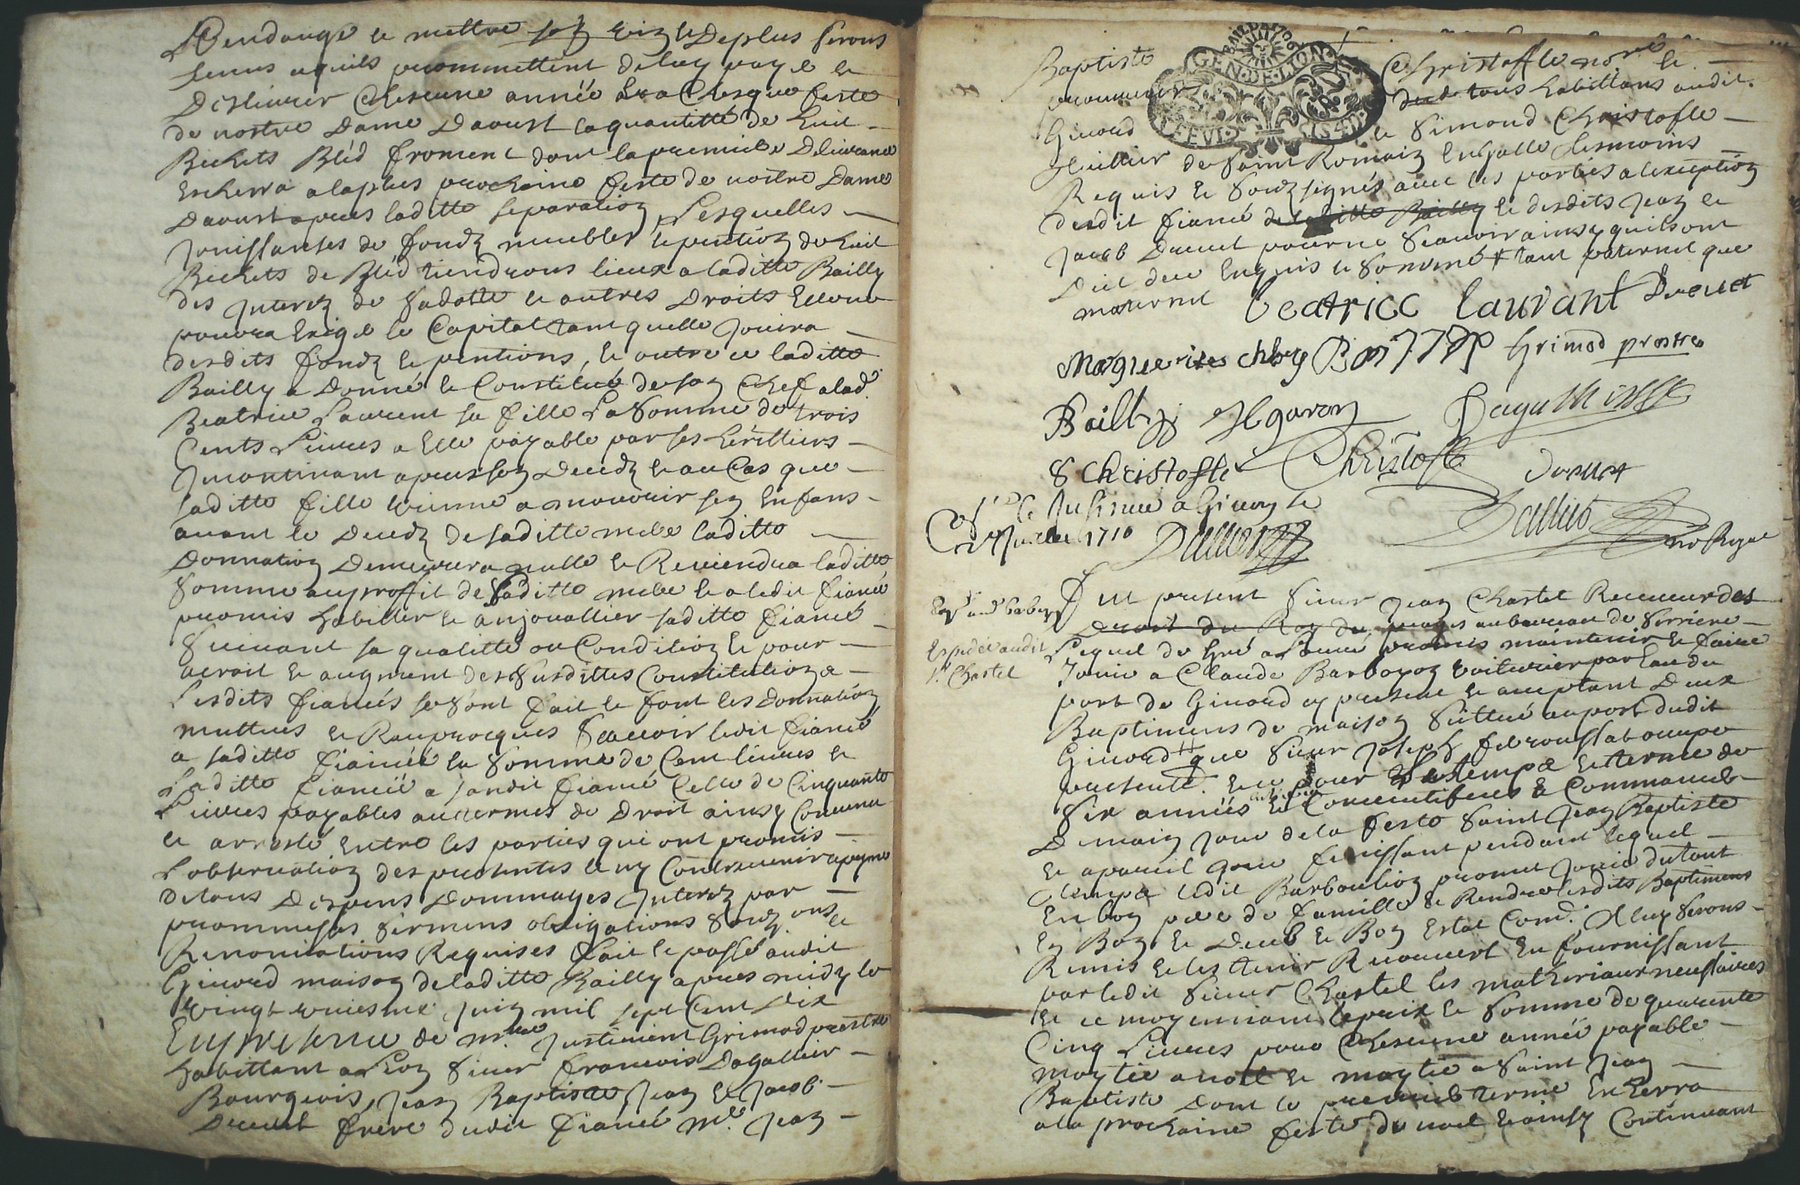 Vendange et mettre son vin et de plus seront
tenus ainsi qu'ils promettent de luy payé et
deslivrer chescune année à chesque feste
de nostre dame daoust la quantitté de huit
Bichets bled froment dont la premiere delivrance
escherra a la plus prochaine feste de nostre Dame
daoust apres laditte separation, Lesquelles
Jouissances de fondz meubles et pention de huit
Bichets de bled tiendrons lieux a laditte Bailly
des Interetz de sa dotte et autres Droits et
pourra Exigé le Capital tant quelle Jouira
desdits fondz et pentions, et outre ce laditte
Bailly a Donné et Constitué de son chef a lad.
Beatrice Laurent sa fille La Somme de trois
Cents Livres a Elle payable par ses heritiers
Incontinant apres son Decedz et au Cas que
laditte fille vienne a mourir sen Enfans
avant le Decedz de laditte mere laditte
Donnation Demeurera nulle et Reviendra laditte
Somme au proffit de laditte mere et a ledit fiancé
promis habiller et anjouallier laditte fiancé
Suivant sa qualitte ou Condition et pour
et augment des susdittes Constitutions
Lesdits fiancés se sont fait et font les Donnations
mutties et Reciprocques Scavoir ledit fiancé
a laditte fiancée la Somme de Cent livres et
Laditte fiancée a sondit fiancé Celle de Cinquante
Livres payables aux termes de Droit ainsy Convenu
et arresté Entre les parties qui ont promis
L'observation des presentes et ny Contrevenir a peyne
de tous Despens Dommages Interetz par
prommesses sermens obligations
Renonciations Requises fait et passé audit
Givord maison de laditte Bailly apres midy le
vingt troiesme Juin mil sept Cent dix
En presence de mre Justinient Grimod prestre
habittant a Lyon Sieur francois Dagallier
Bourgeois, Jean Baptiste Jean et Jacob
Drevet frere dudit fiancé Mr. Jean
Baptiste Christofle nore et
GEN. DE LYON
tous habittans audit
Givord et Simond Christofle
de Saint Romain En Jalle tesmoins
Requis et Souzsignés avec les parties a lexception
dudit fiancé de laditte Bailly et desdits Jean et
Jacob Drevet pour ne Scavoir ainsy quils ont
Dit deue Enquis et Sommé tant paternel que
maternel beatrice laurant Drevet
Marguerite Grimod prestre
Bailly
S Christofle Christofle Drevet
Insinué a Givors le
Juillet 1710
no Royal
Fut present Sieur Jean Chastel Receveur des
droits du Roy au bureau de Serriere
Expedié audit
Sr. Chastel
Lequel de gré a promis maintenir et faire
Jouir a Claude voiturier par Eau du
port de Givord cy present et acceptant Deux
Baptimens de maison Scittué au port dudit
Givord que Sieur Joseph occupe
presente. et ce pour Le temps et terme de
Six années et Consecutifves & Commencés
Demain Jour de la feste Saint Jean Baptiste
et a pareil Jour finissant pendant lequel
temps ledit promet Jouir du tout
En bon pere de famille & Rendre lesdits Baptimens
En Bon et Deub et Bon Estat Comᵉ. Il luy Serons
Remis et les tenir Recouvert En fournissant
par ledit Sieur Chastel les mathériaux necessaires
Et ce moyennant le prix et Somme de quarente
Cinq Livres pour Chescune année payable
moytié a noel et moytié a Saint Jean
Baptiste dont le premier terme Escherra
a la prochaine feste de noel et ainsy Continuant